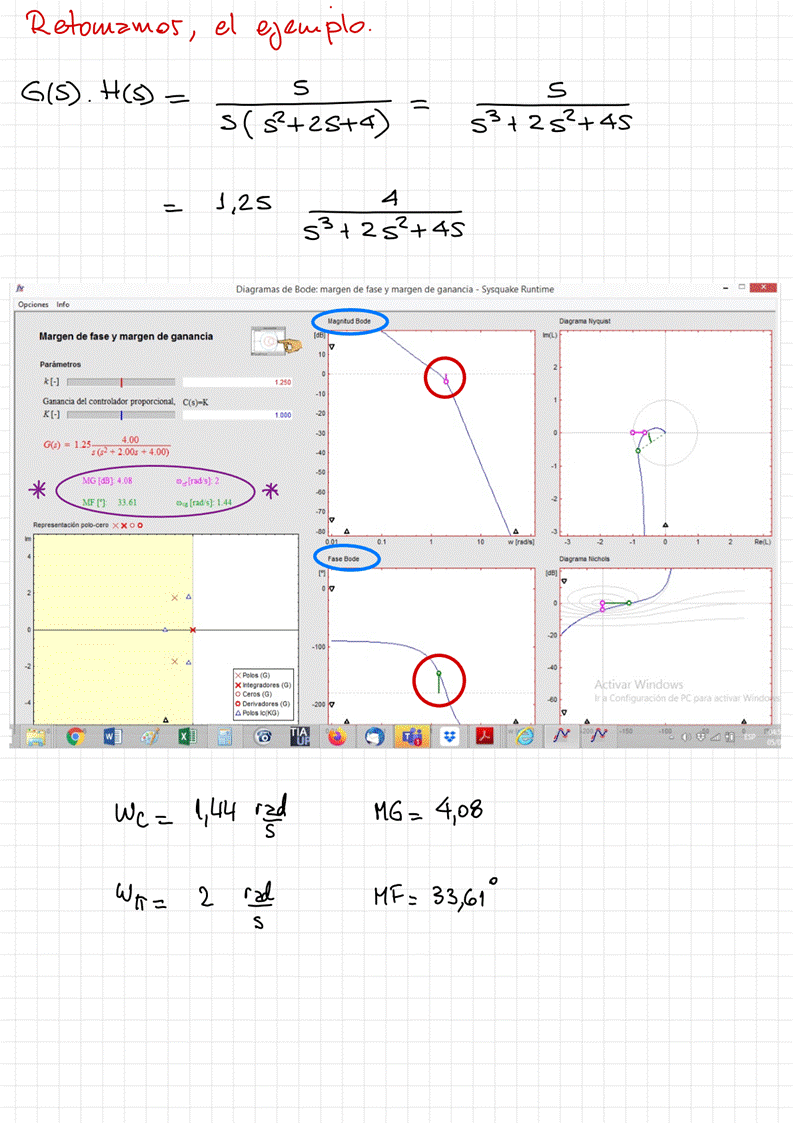 Retomamos, el ejemplo.
G(s) . H(s) = 5 / (s(s²+2s+4)) = 5 / (s³+2s²+4s)
= 1,25 4 / (s³+2s²+4s)
Diagramas de Bode: margen de fase y margen de ganancia - Sysquake Runtime
Opciones Info
Margen de fase y margen de ganancia
Parámetros
k [-] 1.250
Ganancia del controlador proporcional, C(s)=K
K [-] 1.000
G(s) = 1.25 4.00 / (s (s² + 2.00s + 4.00))
MG [dB]: 4.08 ω_cf [rad/s]: 2
MF [°]: 33.61 ω_cg [rad/s]: 1.44
Representación polo-cero
Im
4
2
0
-2
-4
Polos (G)
Integradores (G)
Ceros (G)
Derivadores (G)
Polos lc(KG)
Magnitud Bode
[dB]
10
0
-10
-20
-30
-40
-50
-60
-70
-80
0.01 0.1 1 10 w [rad/s]
Fase Bode
[°]
0
-100
-200
Diagrama Nyquist
Im(L)
2
1
0
-1
-2
-3
-3 -2 -1 0 1 2 Re(L)
Diagrama Nichols
[dB]
0
-20
-40
-60
Activar Windows
Ir a Configuración de PC para activar Windows
-200 -150 -100 -50 0
ESP
ω_c = 1,44 rad/s MG = 4,08
ω_π = 2 rad/s MF = 33,61°